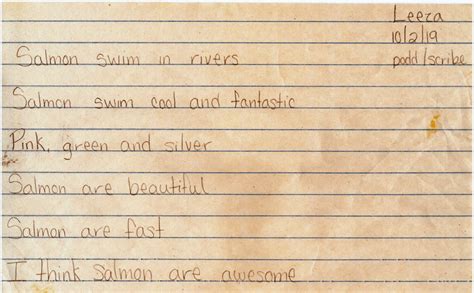 Leeza
10/2/19
podd/scribe
Salmon swim in rivers
Salmon swim cool and fantastic
Pink, green and silver
Salmon are beautiful
Salmon are fast
I think Salmon are awesome